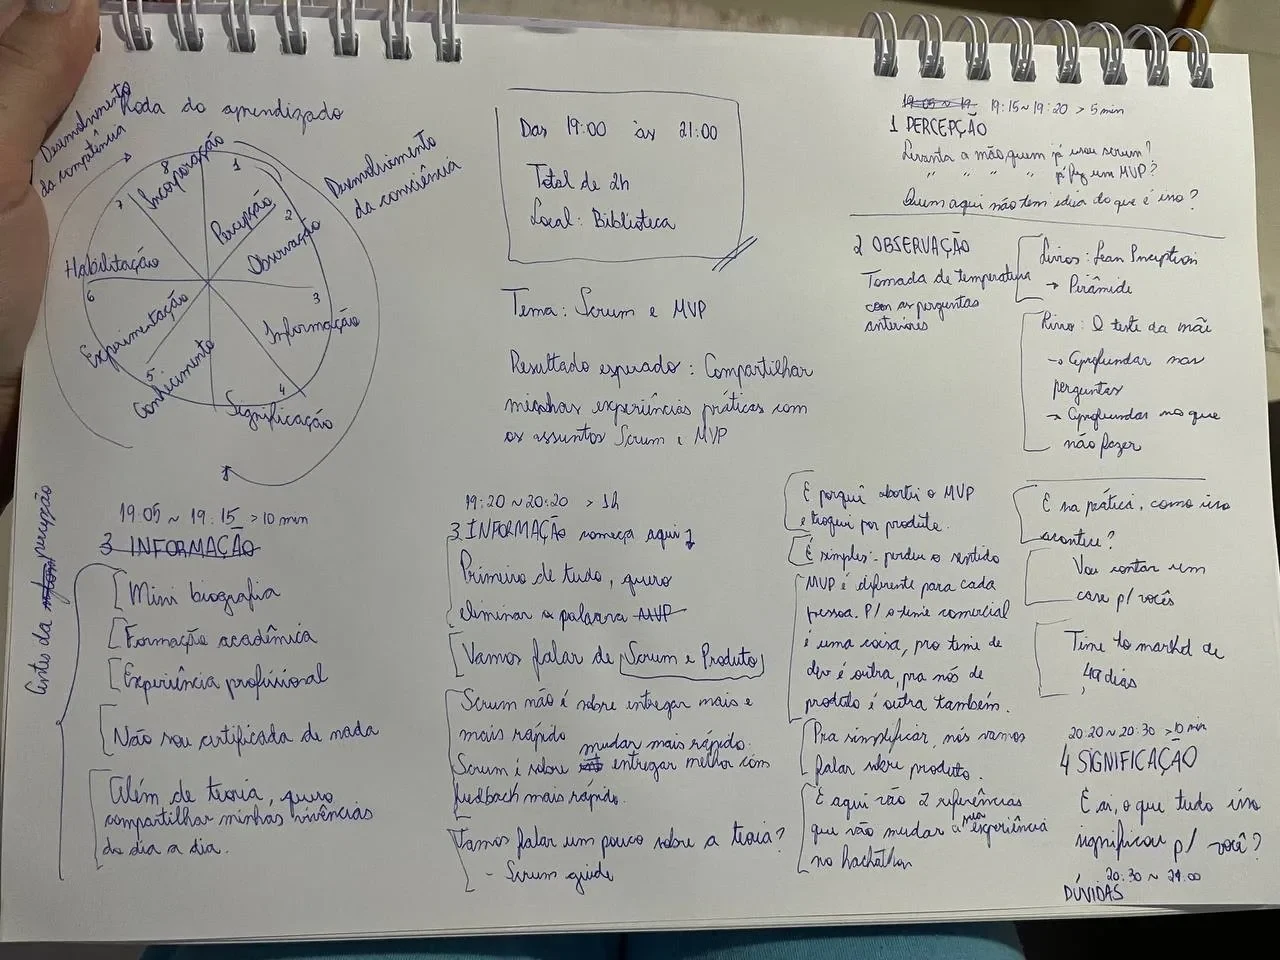 Roda do aprendizado
Desenvolvimento
da competência
Desenvolvimento
da consciência
1
Percepção
2
Observação
3
Informação
4
Significação
5
Conhecimento
Experimentação
6
Habilitação
7
8
Incorporação
Das 19:00 às 21:00
Total de 2h
Local: Biblioteca
Tema: Scrum e MVP
Resultado esperado: Compartilhar
minhas experiências práticas com
os assuntos Scrum e MVP
19:05 ~ 19 19:15 ~ 19:20 > 5 min
1 PERCEPÇÃO
Levanta a mão quem já usou scrum?
" " " " já fez um MVP?
Quem aqui não tem ideia do que é isso?
2 OBSERVAÇÃO
Tomada de temperatura
com as perguntas
anteriores
Livros: Lean Inception
→ Pirâmide
Livro: O teste da mãe
→ Aprofundar nas
perguntas
→ Aprofundar no que
não fazer
Antes da percepção
19:05 ~ 19:15 > 10 min
3 INFORMAÇÃO
Mini biografia
Formação acadêmica
Experiência profissional
Não sou certificada de nada
Além de teoria, quero
compartilhar minhas vivências
do dia a dia.
19:20 ~ 20:20 > 1h
3 INFORMAÇÃO começa aqui
Primeiro de tudo, quero
eliminar a palavra MVP
Vamos falar de Scrum e Produto
Scrum não é sobre entregar mais e
mais rápido
mudar mais rápido.
Scrum é sobre entregar melhor com
feedback mais rápido.
Vamos falar um pouco sobre a teoria?
- Scrum guide
E porquê abortei o MVP
e troquei por produto.
É simples: perdeu o sentido
MVP é diferente para cada
pessoa. P/ o time comercial
é uma coisa, pro time de
dev é outra, pra nós de
produto é outra também.
Pra simplificar, nós vamos
falar sobre produto.
E aqui vão 2 referências
que vão mudar a sua experiência
no hackathon
E na prática, como isso
acontece?
Vou contar um
case p/ vocês
Time to market de
49 dias
20:20 ~ 20:30 > 10 min
4 SIGNIFICAÇÃO
E aí, o que tudo isso
significou p/ você?
20:30 ~ 21:00
DÚVIDAS